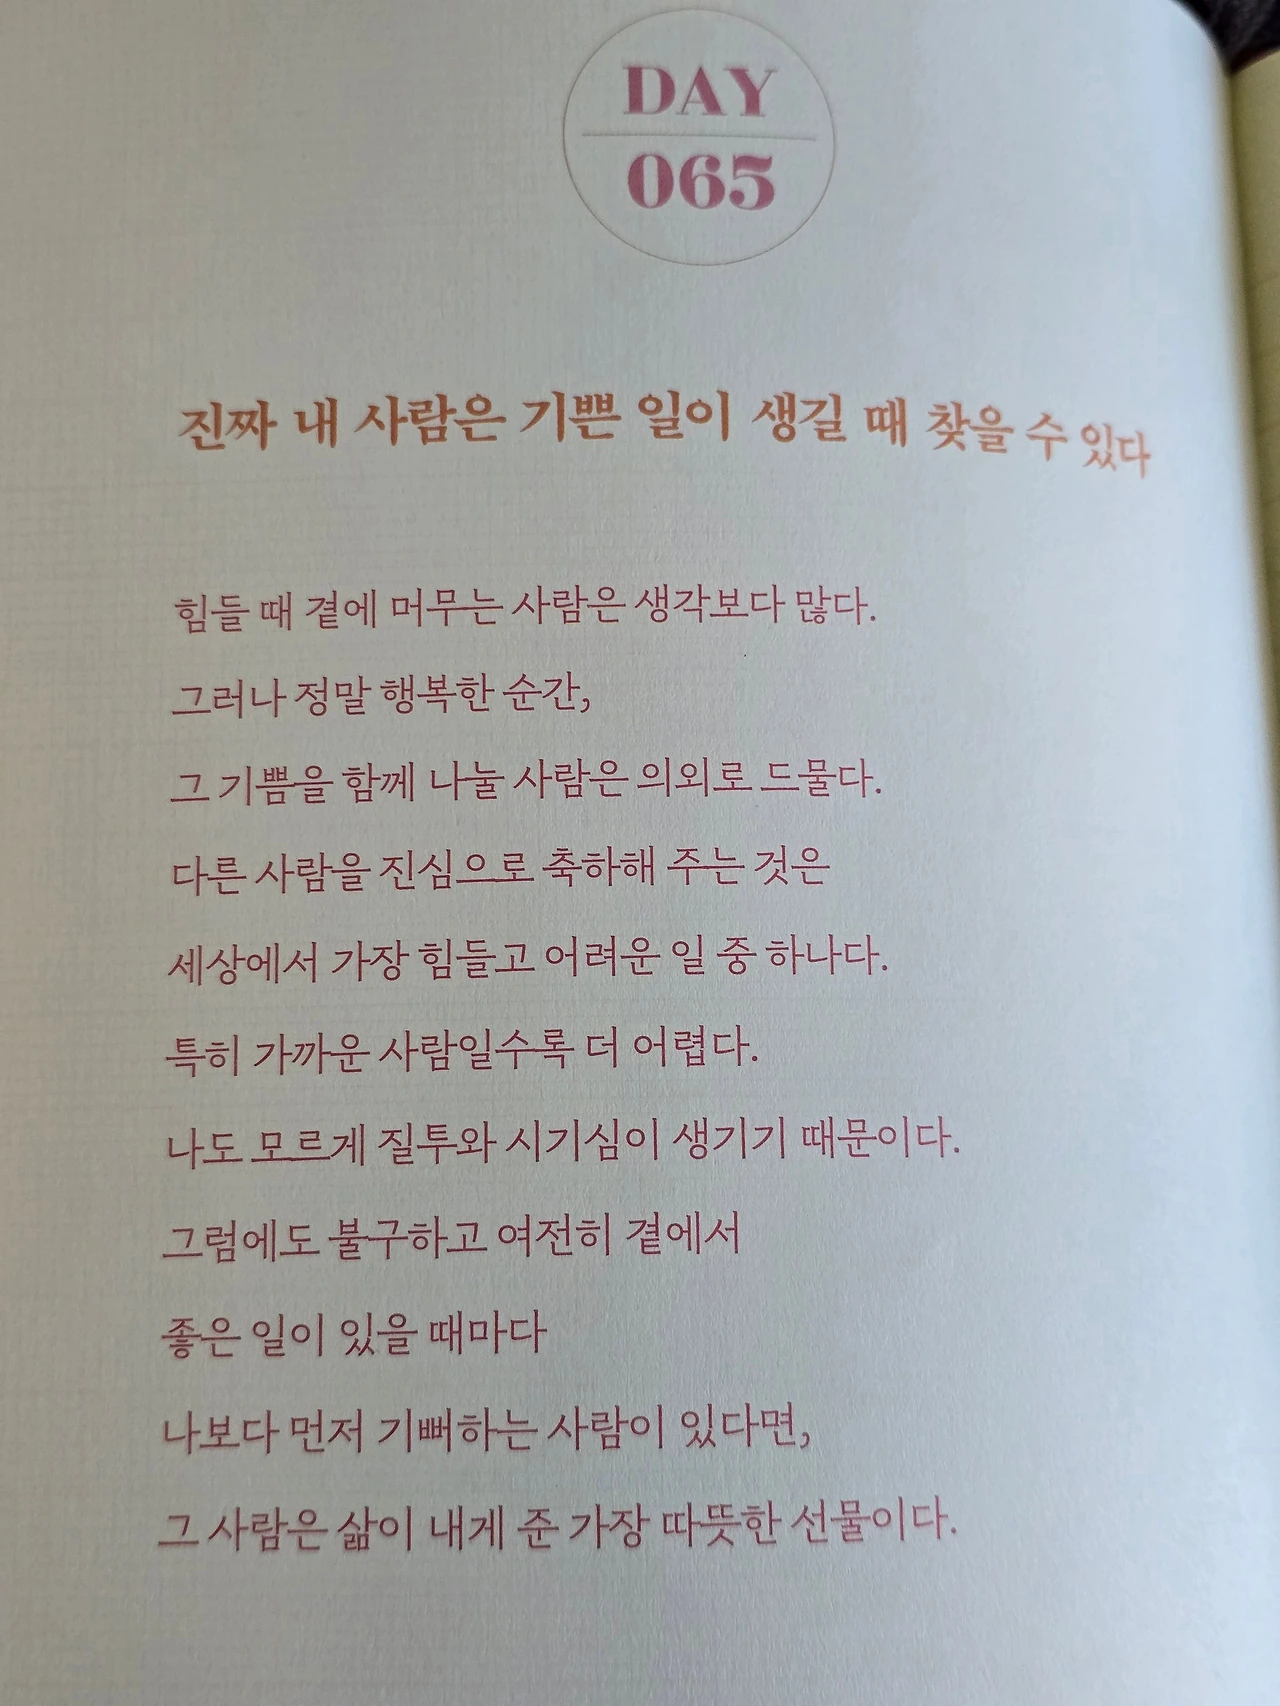 DAY
065
진짜 내 사람은 기쁜 일이 생길 때 찾을 수 있다
힘들 때 곁에 머무는 사람은 생각보다 많다.
그러나 정말 행복한 순간,
그 기쁨을 함께 나눌 사람은 의외로 드물다.
다른 사람을 진심으로 축하해 주는 것은
세상에서 가장 힘들고 어려운 일 중 하나다.
특히 가까운 사람일수록 더 어렵다.
나도 모르게 질투와 시기심이 생기기 때문이다.
그럼에도 불구하고 여전히 곁에서
좋은 일이 있을 때마다
나보다 먼저 기뻐하는 사람이 있다면,
그 사람은 삶이 내게 준 가장 따뜻한 선물이다.